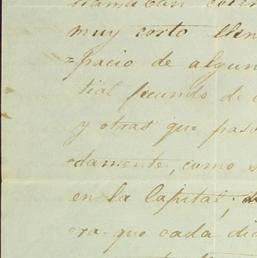 llamaban
muy corto
=pacio de algun
tial fecundo de
y otras que pasa
damente, como s
en la Capital;
ra que cada dia